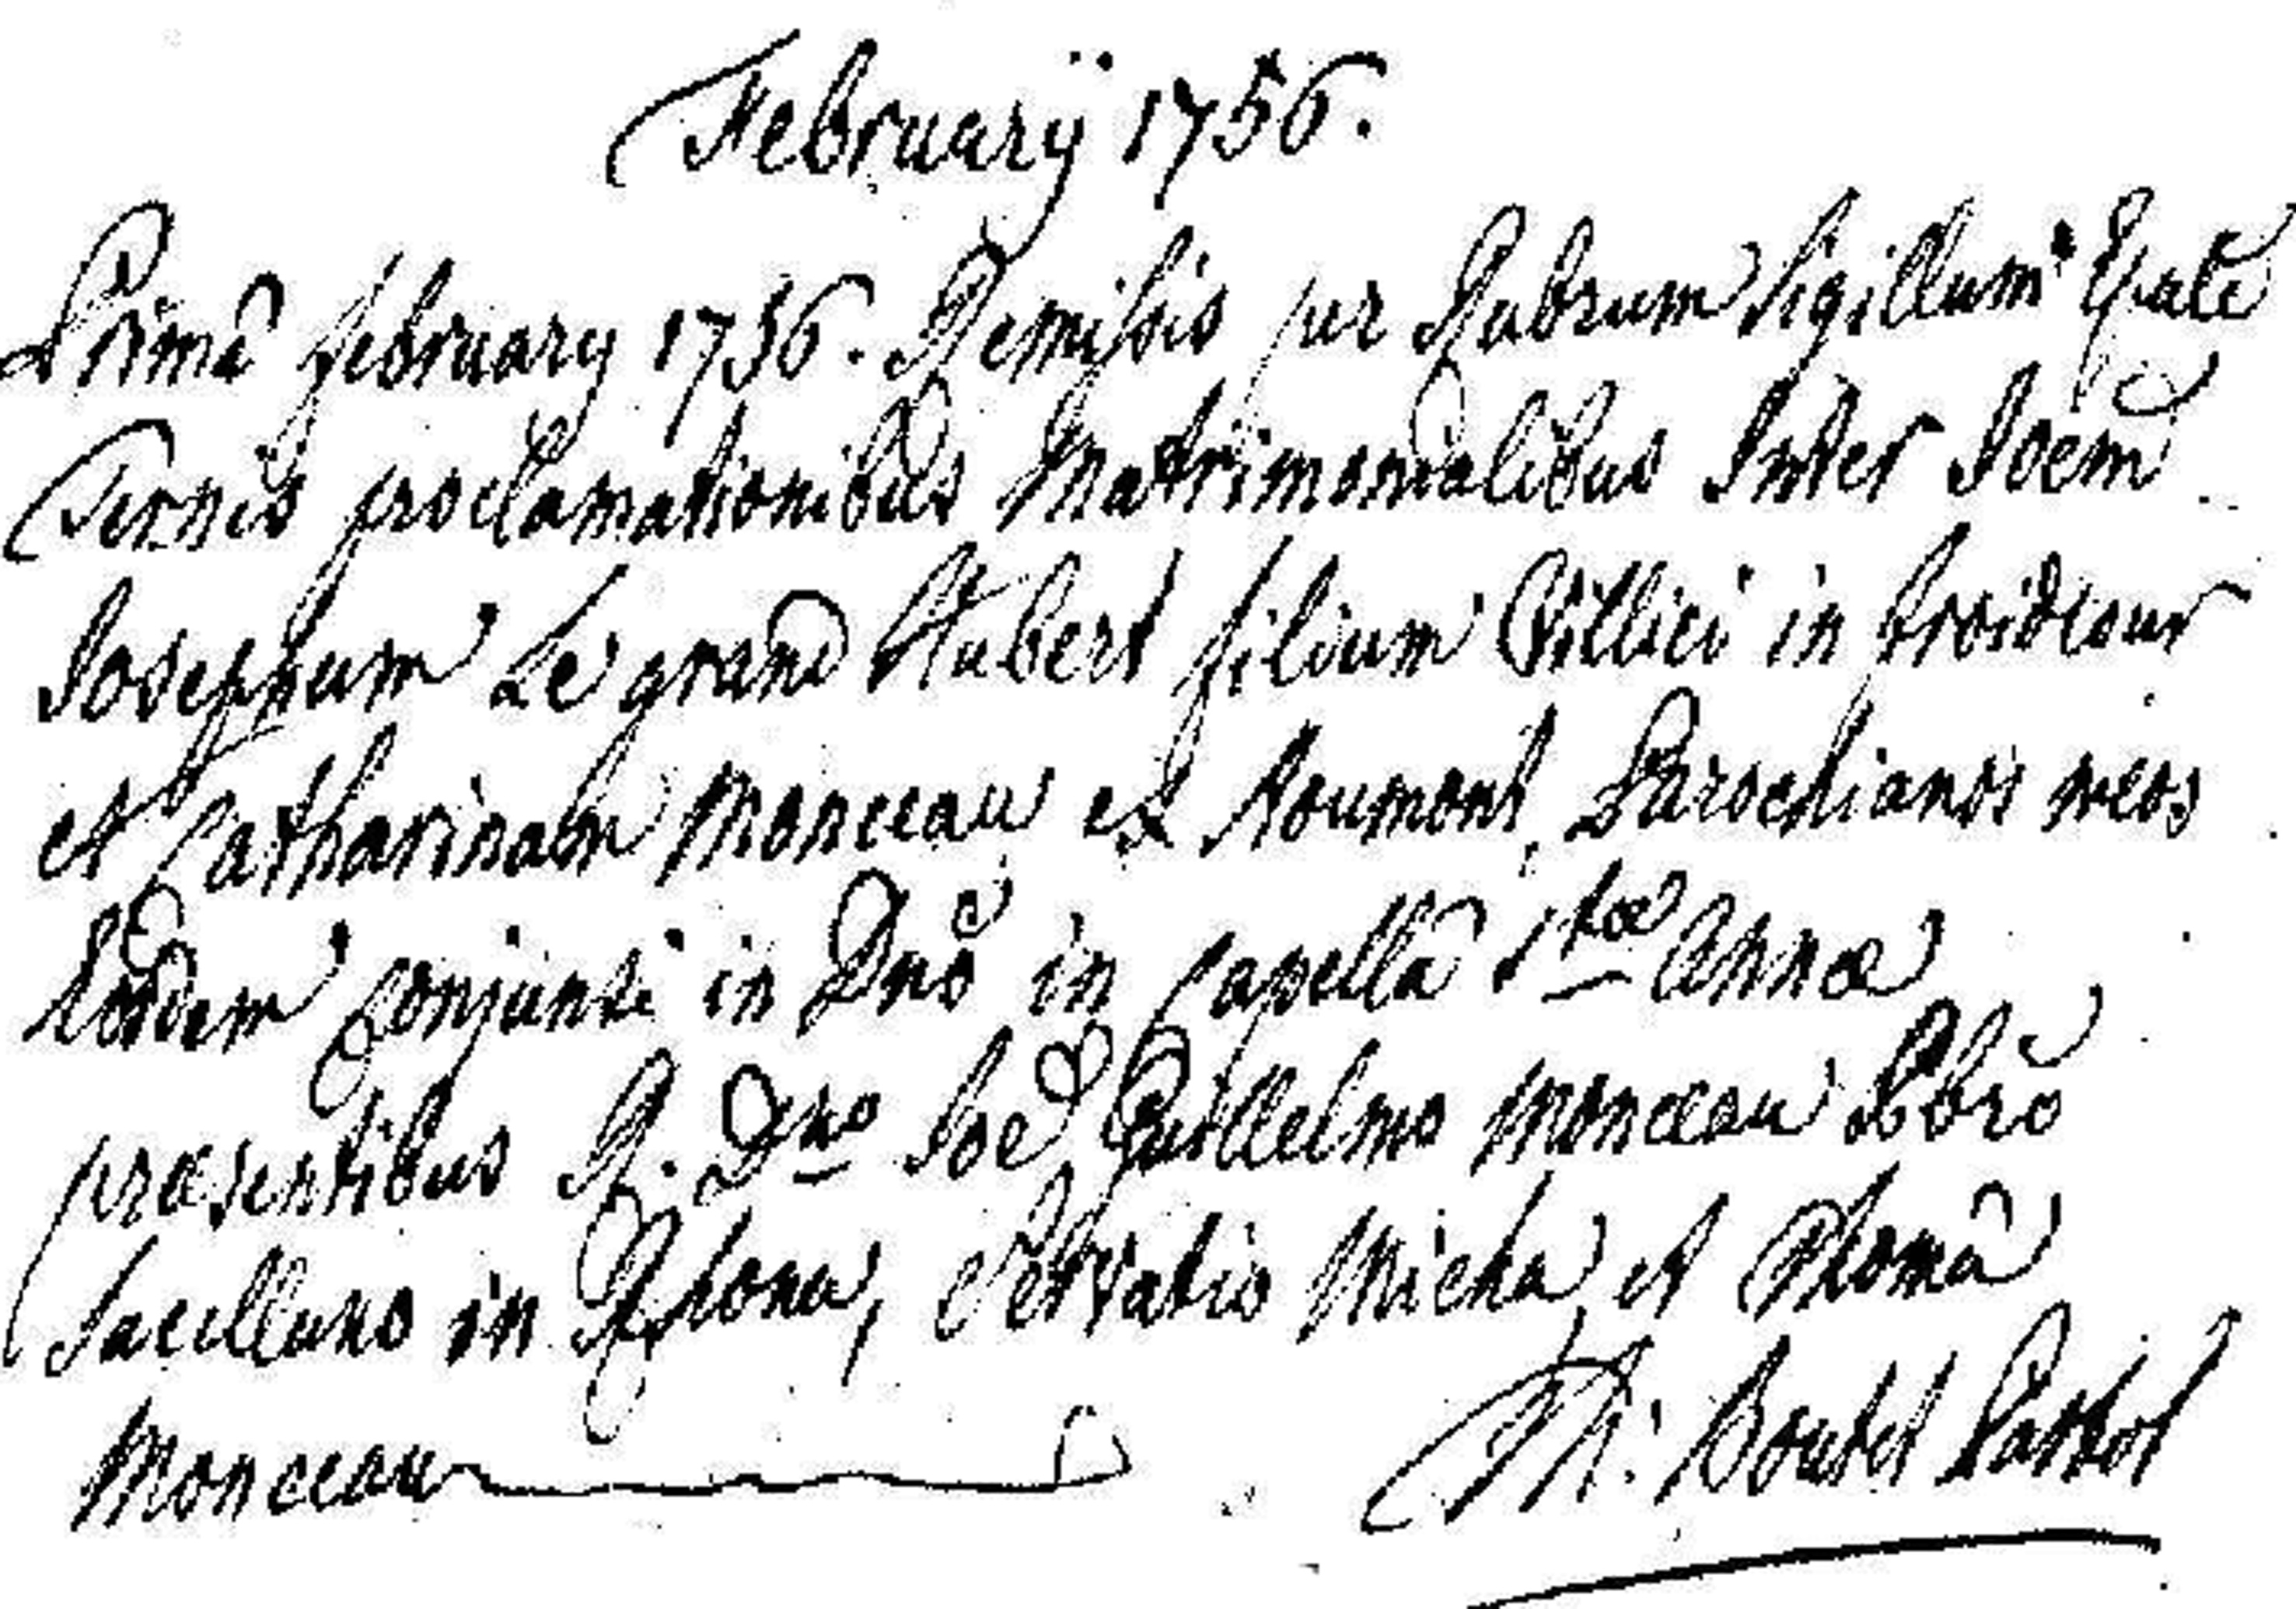 Februarÿ 1756.
Primâ february 1756. Remissis per Rubrum Sigillum Epale
Ternis proclamationibus Matrimonialibus Inter Joēm
Josephum Le grand Hubert filium Villici in froidcour
et Catharinam Monceau ex Roumont, Parochianos meos
Eosdem conjunxi in Dno in Capella Stæ Annæ
præsentibus R. Dno Joē Guillelmo Monceau Pbro
Sacellano in Servatio Micha et Thomâ
Monceau
Th: Boutet Pastor